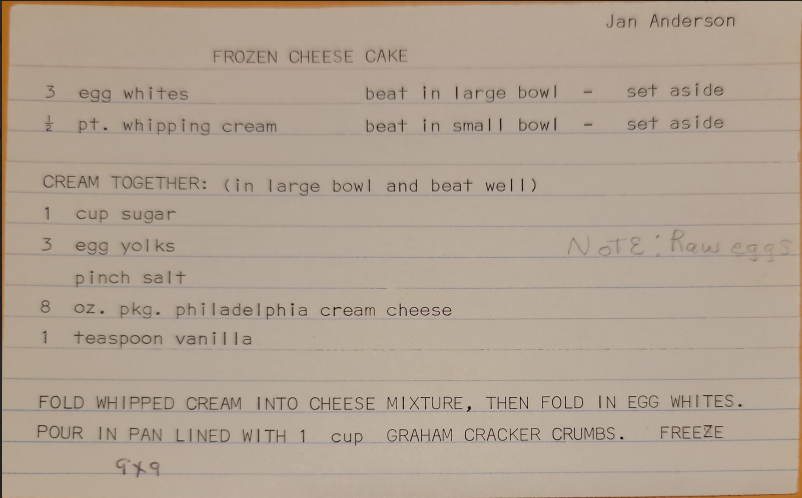 Jan Anderson
FROZEN CHEESE CAKE
3 egg whites beat in large bowl - set aside
½ pt. whipping cream beat in small bowl - set aside
CREAM TOGETHER: (in large bowl and beat well)
1 cup sugar
3 egg yolks NOTE: Raw eggs
pinch salt
8 oz. pkg. philadelphia cream cheese
1 teaspoon vanilla
FOLD WHIPPED CREAM INTO CHEESE MIXTURE, THEN FOLD IN EGG WHITES.
POUR IN PAN LINED WITH 1 cup GRAHAM CRACKER CRUMBS. FREEZE
9x9